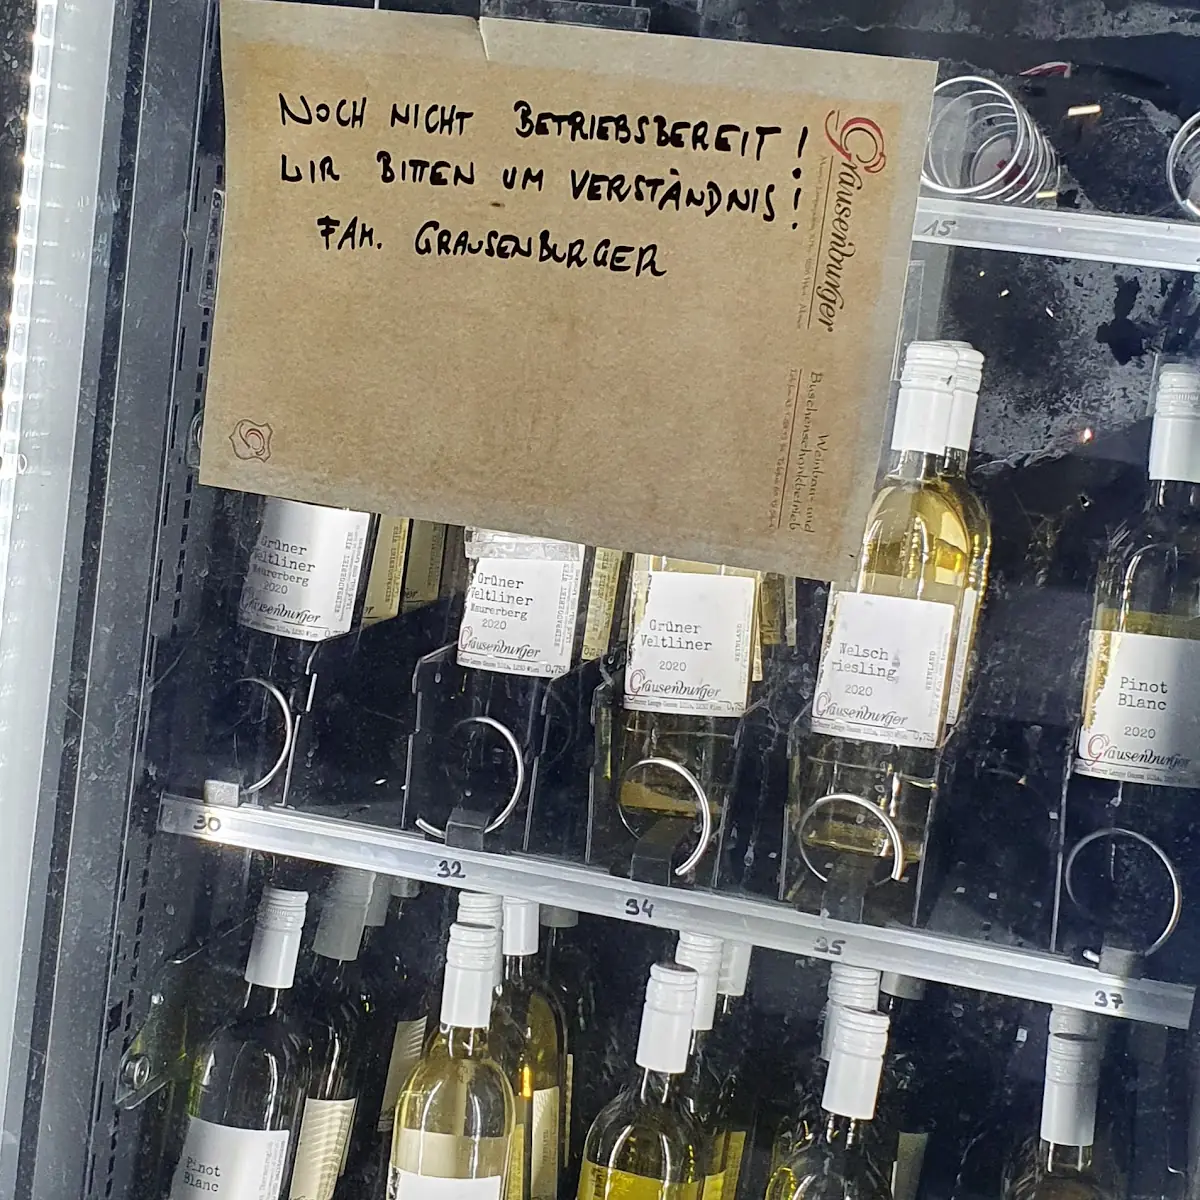 NOCH NICHT BETRIEBSBEREIT!
WIR BITTEN UM VERSTÄNDNIS!
FAM. GRAUSENBURGER
Grausenburger
Weinbau- und
Buschenschankbetrieb
15
Grüner
Veltliner
Maurerberg
2020
Grausenburger
Grüner
Veltliner
Maurerberg
2020
Grausenburger
0,75l
Grüner
Veltliner
2020
Grausenburger
0,75l
WEINLAND
Welsch
riesling
2020
Grausenburger
0,75l
WEINLAND
Pinot
Blanc
2020
Grausenburger
30
32
34
35
37
Pinot
Blanc